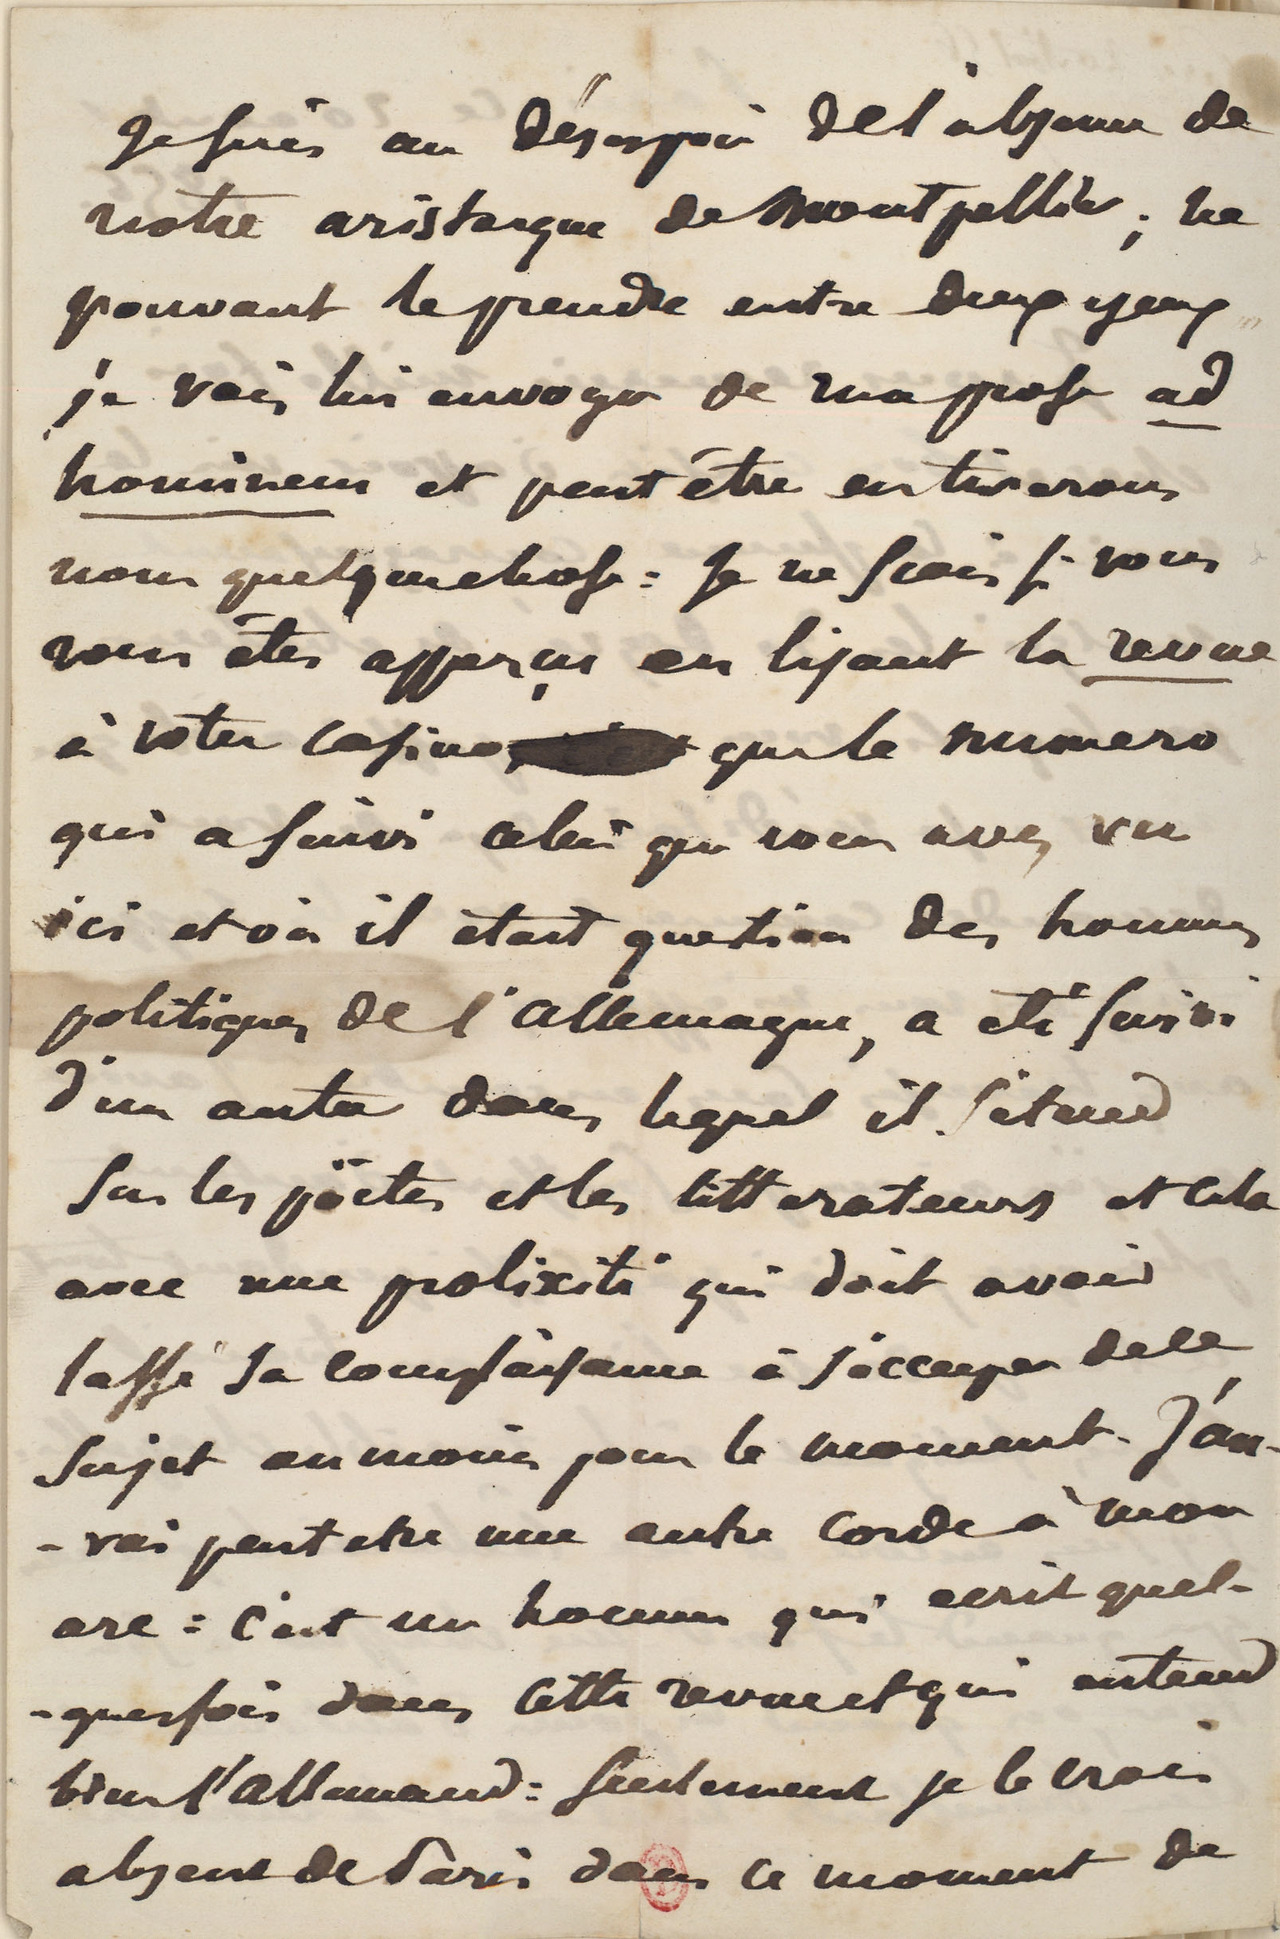 Je suis au désespoir de l'absence de
notre aristarque de Montpellier ; ne
pouvant le prendre entre deux yeux
je vais lui envoyer de ma prose ad
hominem et peut être en tirerons
nous quelque chose : Je ne scais si vous
vous êtes apperçus en lisant la revue
à votre Casino, que le numero
qui a suivi celui que vous avez vu
ici et où il était question des hommes
politiques de l'Allemagne, a eté suivi
d'un autre dans lequel il s'étend
sur les pöetes et les litterateurs et cela
avec une prolixité qui doit avoir
lassé sa complaisance à s'occuper de ce
sujet au moins pour le moment. J'au-
-rai peut etre une autre corde à mon
arc : c'est un homme qui ecrit quel-
-quesfois dans cette revue et qui entend
bien l'allemand : seulement je le crois
absent de Paris dans ce moment de